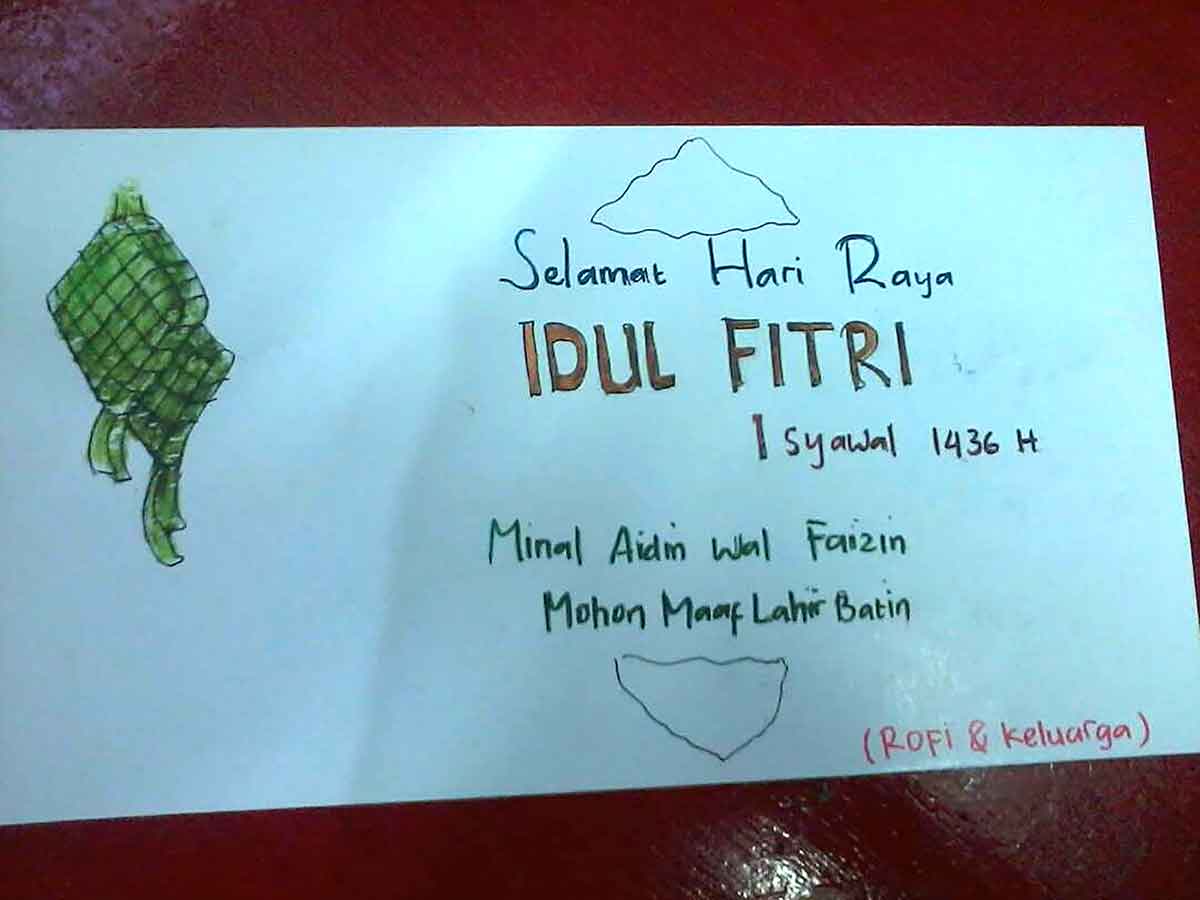 Selamat Hari Raya
IDUL FITRI
1 Syawal 1436 H
Minal Aidin Wal Faizin
Mohon Maaf Lahir Batin
(ROFi & Keluarga)